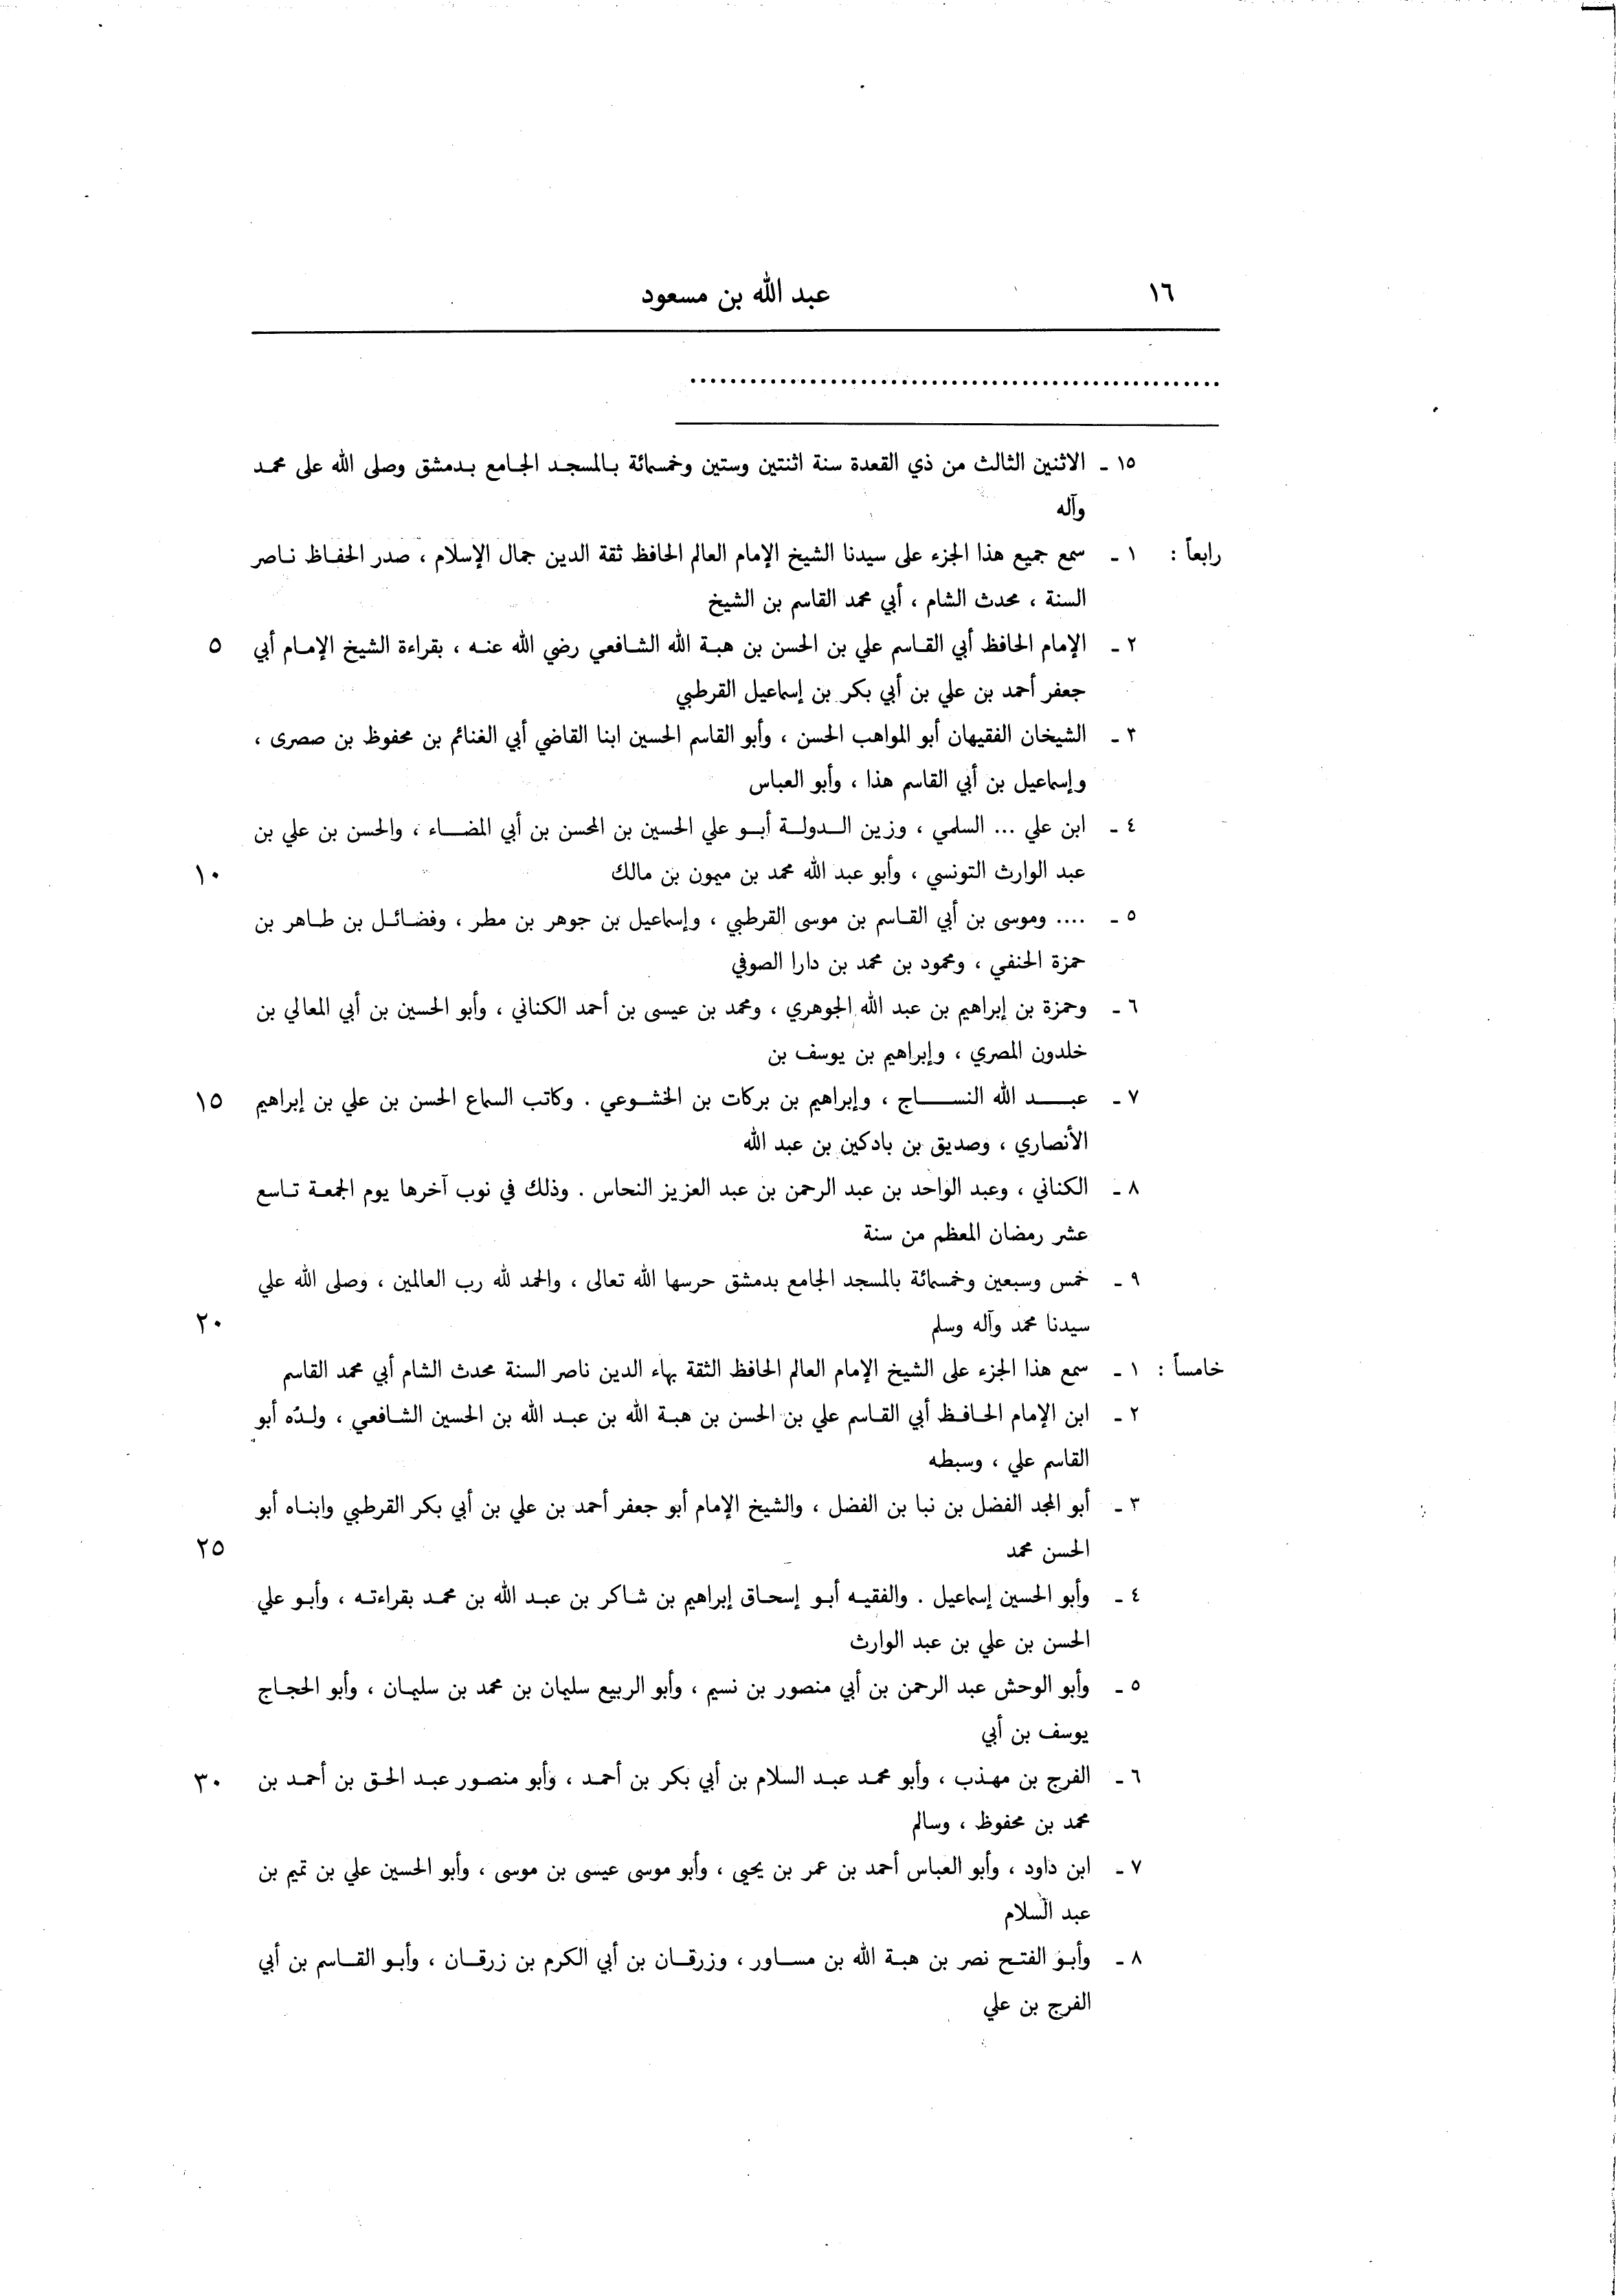 ١٦ عبد الله بن مسعود
......................................................
١٥ ـ الاثنين الثالث من ذي القعدة سنة اثنتين وستين وخمسمائة بالمسجد الجامع بدمشق وصلى الله على محمد
وآله
رابعاً : ١ ـ سمع جميع هذا الجزء على سيدنا الشيخ الإمام العالم الحافظ ثقة الدين جمال الإسلام ، صدر الحفاظ ناصر
السنة ، محدث الشام ، أبي محمد القاسم بن الشيخ
٢ ـ الإمام الحافظ أبي القاسم علي بن الحسن بن هبة الله الشافعي رضي الله عنه ، بقراءة الشيخ الإمام أبي ٥
جعفر أحمد بن علي بن أبي بكر بن إسماعيل القرطبي
٣ ـ الشيخان الفقيهان أبو المواهب الحسن ، وأبو القاسم الحسين ابنا القاضي أبي الغنائم بن محفوظ بن صصرى ،
وإسماعيل بن أبي القاسم هذا ، وأبو العباس
٤ ـ ابن علي ... السلمي ، وزين الدولة أبو علي الحسين بن المحسن بن أبي المضاء ، والحسن بن علي بن
عبد الوارث التونسي ، وأبو عبد الله محمد بن ميمون بن مالك ١٠
٥ ـ .... وموسى بن أبي القاسم بن موسى القرطبي ، وإسماعيل بن جوهر بن مطر ، وفضائل بن طاهر بن
حمزة الحنفي ، ومحمود بن محمد بن دارا الصوفي
٦ ـ وحمزة بن إبراهيم بن عبد الله الجوهري ، ومحمد بن عيسى بن أحمد الكناني ، وأبو الحسين بن أبي المعالي بن
خلدون المصري ، وإبراهيم بن يوسف بن
٧ ـ عبد الله النساج ، وإبراهيم بن بركات بن الخشوعي . وكاتب السماع الحسن بن علي بن إبراهيم ١٥
الأنصاري ، وصديق بن بادكين بن عبد الله
٨ ـ الكناني ، وعبد الواحد بن عبد الرحمن بن عبد العزيز النحاس . وذلك في نوب آخرها يوم الجمعة تاسع
عشر رمضان المعظم من سنة
٩ ـ خمس وسبعين وخمسمائة بالمسجد الجامع بدمشق حرسها الله تعالى ، والحمد لله رب العالمين ، وصلى الله علي
سيدنا محمد وآله وسلم ٢٠
خامساً : ١ ـ سمع هذا الجزء على الشيخ الإمام العالم الحافظ الثقة بهاء الدين ناصر السنة محدث الشام أبي محمد القاسم
٢ ـ ابن الإمام الحافظ أبي القاسم علي بن الحسن بن هبة الله بن عبد الله بن الحسين الشافعي ، ولدُه أبو
القاسم علي ، وسبطه
٣ ـ أبو المجد الفضل بن نبا بن الفضل ، والشيخ الإمام أبو جعفر أحمد بن علي بن أبي بكر القرطبي وابناه أبو
الحسن محمد ٢٥
٤ ـ وأبو الحسين إسماعيل . والفقيه أبو إسحاق إبراهيم بن شاكر بن عبد الله بن محمد بقراءته ، وأبو علي
الحسن بن علي بن عبد الوارث
٥ ـ وأبو الوحش عبد الرحمن بن أبي منصور بن نسيم ، وأبو الربيع سليمان بن محمد بن سليمان ، وأبو الحجاج
يوسف بن أبي
٦ ـ الفرج بن مهذب ، وأبو محمد عبد السلام بن أبي بكر بن أحمد ، وأبو منصور عبد الحق بن أحمد بن ٣٠
محمد بن محفوظ ، وسالم
٧ ـ ابن داود ، وأبو العباس أحمد بن عمر بن يحيى ، وأبو موسى عيسى بن موسى ، وأبو الحسين علي بن تميم بن
عبد السلام
٨ ـ وأبو الفتح نصر بن هبة الله بن مساور ، وزرقان بن أبي الكرم بن زرقان ، وأبو القاسم بن أبي
الفرج بن علي